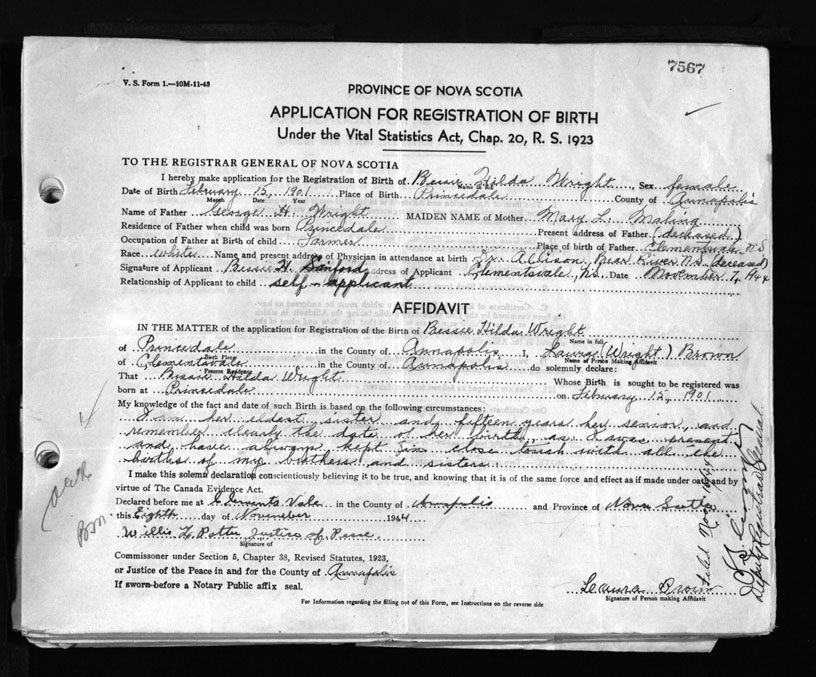 7567
V. S. Form 1.—10M-11-43
PROVINCE OF NOVA SCOTIA
APPLICATION FOR REGISTRATION OF BIRTH
Under the Vital Statistics Act, Chap. 20, R. S. 1923
TO THE REGISTRAR GENERAL OF NOVA SCOTIA
I hereby make application for the Registration of Birth of Bessie Hilda Wright, Sex female
Date of Birth February 15, 1901 Place of Birth Princedale County of Annapolis
Month Date Year
Name of Father George H. Wright MAIDEN NAME of Mother Mary L. Maling
Residence of Father when child was born Princedale Present address of Father (deceased)
Occupation of Father at Birth of child Farmer Place of birth of Father Clementsvale N.S
Race white Name and present address of Physician in attendance at birth Dr. Allison, Bear River N.S. (deceased)
Signature of Applicant Bessie H. Sanford address of Applicant Clementsvale, N.S. Date November 7, 1944
Relationship of Applicant to child self - applicant
AFFIDAVIT
IN THE MATTER of the application for Registration of the Birth of Bessie Hilda Wright
Name in full
of Princedale in the County of Annapolis I, Laura (Wright) Brown
Birth Place Name of Person Making Affidavit
of Clementsvale in the County of Annapolis do solemnly declare:
Present Residence
That Bessie Hilda Wright Whose Birth is sought to be registered was
born at Princedale on February 12, 1901
My knowledge of the fact and date of such Birth is based on the following circumstances:
I am her eldest sister and fifteen years her senior, and
remember clearly the date of her birth, as I was present
and have always kept in close touch with all the
births of my brothers and sisters.
I make this solemn declaration conscientiously believing it to be true, and knowing that it is of the same force and effect as if made under oath and by
virtue of The Canada Evidence Act.
Declared before me at Clements Vale in the County of Annapolis and Province of Nova Scotia
this Eighth day of November 1944
Willis L. Potter Justice of Peace
Signature of
Commissioner under Section 5, Chapter 38, Revised Statutes, 1923,
or Justice of the Peace in and for the County of Annapolis
If sworn before a Notary Public affix seal.
Laura Brown
Signature of Person making Affidavit
For Information regarding the filling out of this Form, see Instructions on the reverse side
Filed Nov. 1944
Deputy Registrar General